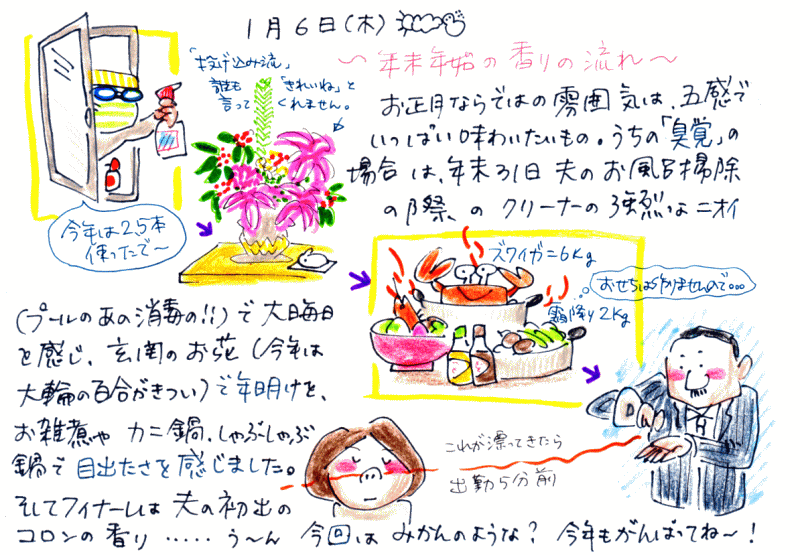 1月6日(木)
〜年末年始の香りの流れ〜
「投げ込み流」
誰も「きれいね」と
言ってくれません。
お正月ならではの雰囲気は、五感で
いっぱい味わいたいもの。うちの「臭覚」の
場合は、年末31日 夫のお風呂掃除
の際、の クリーナーの強烈なニオイ
今年は2.5本
使ったで〜
ズワイガニ6Kg
おせちは作りませんので…
霜降り2Kg
(プールのあの消毒の!!)で大晦日
を感じ、玄関のお花(今年は
大輪の百合がきつい)で年明けを、
お雑煮や カニ鍋、しゃぶしゃぶ
鍋で目出たさを感じました。
これが漂ってきたら
出勤5分前
そしてフィナーレは 夫の初出の
コロンの香り ‥‥‥ う〜ん 今回は みかんのような? 今年もがんばってね〜!